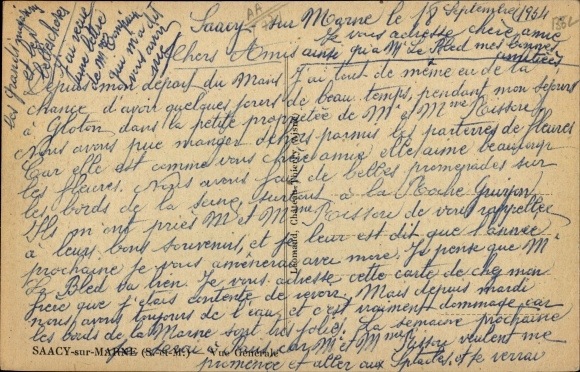 Saacy-sur Marne le 18 Septembre 1954
Je vous adresse chère amie
ainsi qu'à Mr Le Bled mes bonnes
amitiées
Chers Amis
J'ai reçu
une lettre
de Mr
qui m'a dit
vous avoir
Depuis mon départ du Mans J'ai tout de même eu de la
chance d'avoir quelques jours de beau temps, pendant mon séjour
à Gloton dans la petite propriétée de Mr et Mme Rissou
Nous avons pue manger dehors parmis les parterres de fleures
Car elle est comme vous chère amie elle aime beaucoup
les fleures. Nous avons fait de belles promenades sur
les bords de la seine, surtout à la Roche Guyon
Ils m'ont priés Mr et Mme Rissou de vous rappeller
à leurs bons souvenirs, et je leur est dit que l'année
prochaine je vous amènerai avec moi. Je pense que Mr
Le Bled va bien. Je vous adresse cette carte de chez mon
frère que j'étais contente de revoir. Mais depuis mardi
nous avons toujours de l'eau et c'est vraiment dommage car
les bords de la Marne sont très jolies. La semaine prochaine
je serai à Paris car Mr et Mme Rissou veulent me
promener et aller aux Spectacles, et je verrai
SAACY-sur-MARNE (S.-et-M.) - Vue Générale